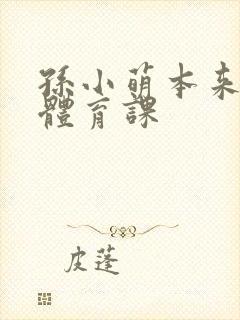 孫小萌本来
體育課
皮蓬